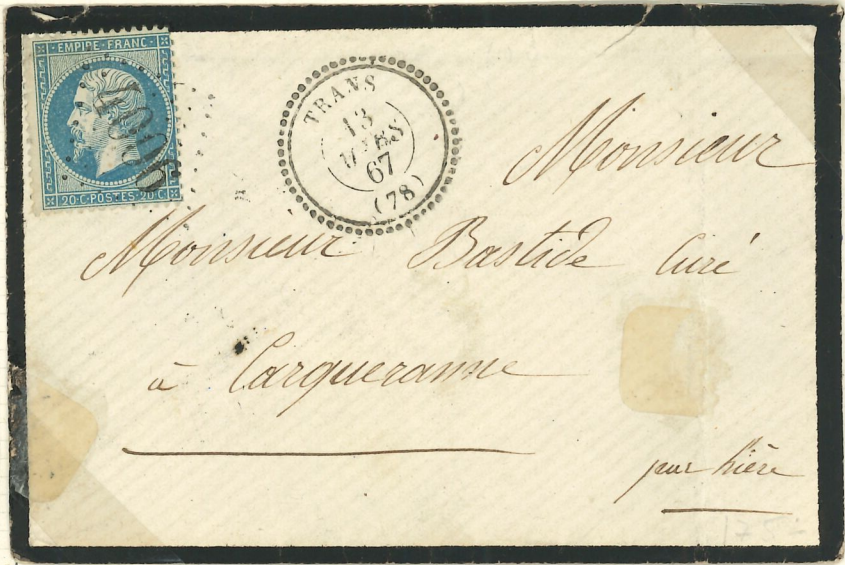 EMPIRE·FRANC·
20·C·POSTES·20·C·
TRANS
13
MARS
67
(78)
Monsieur
Monsieur Bastide Curé
à Carqueranne
par hière
175 -